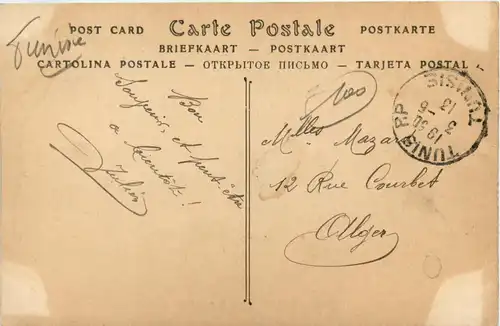 Tunisie
POST CARD Carte Postale POSTKARTE
BRIEFKAART — POSTKAART
CARTOLINA POSTALE — ОТКРЫТОЕ ПИСЬМО — TARJETA POSTAL
Bon
Souvenir, et peut-être
à bientôt!
Melles Mazar
12 Rue Courbet
Alger
TUNIS RP TUNISIE